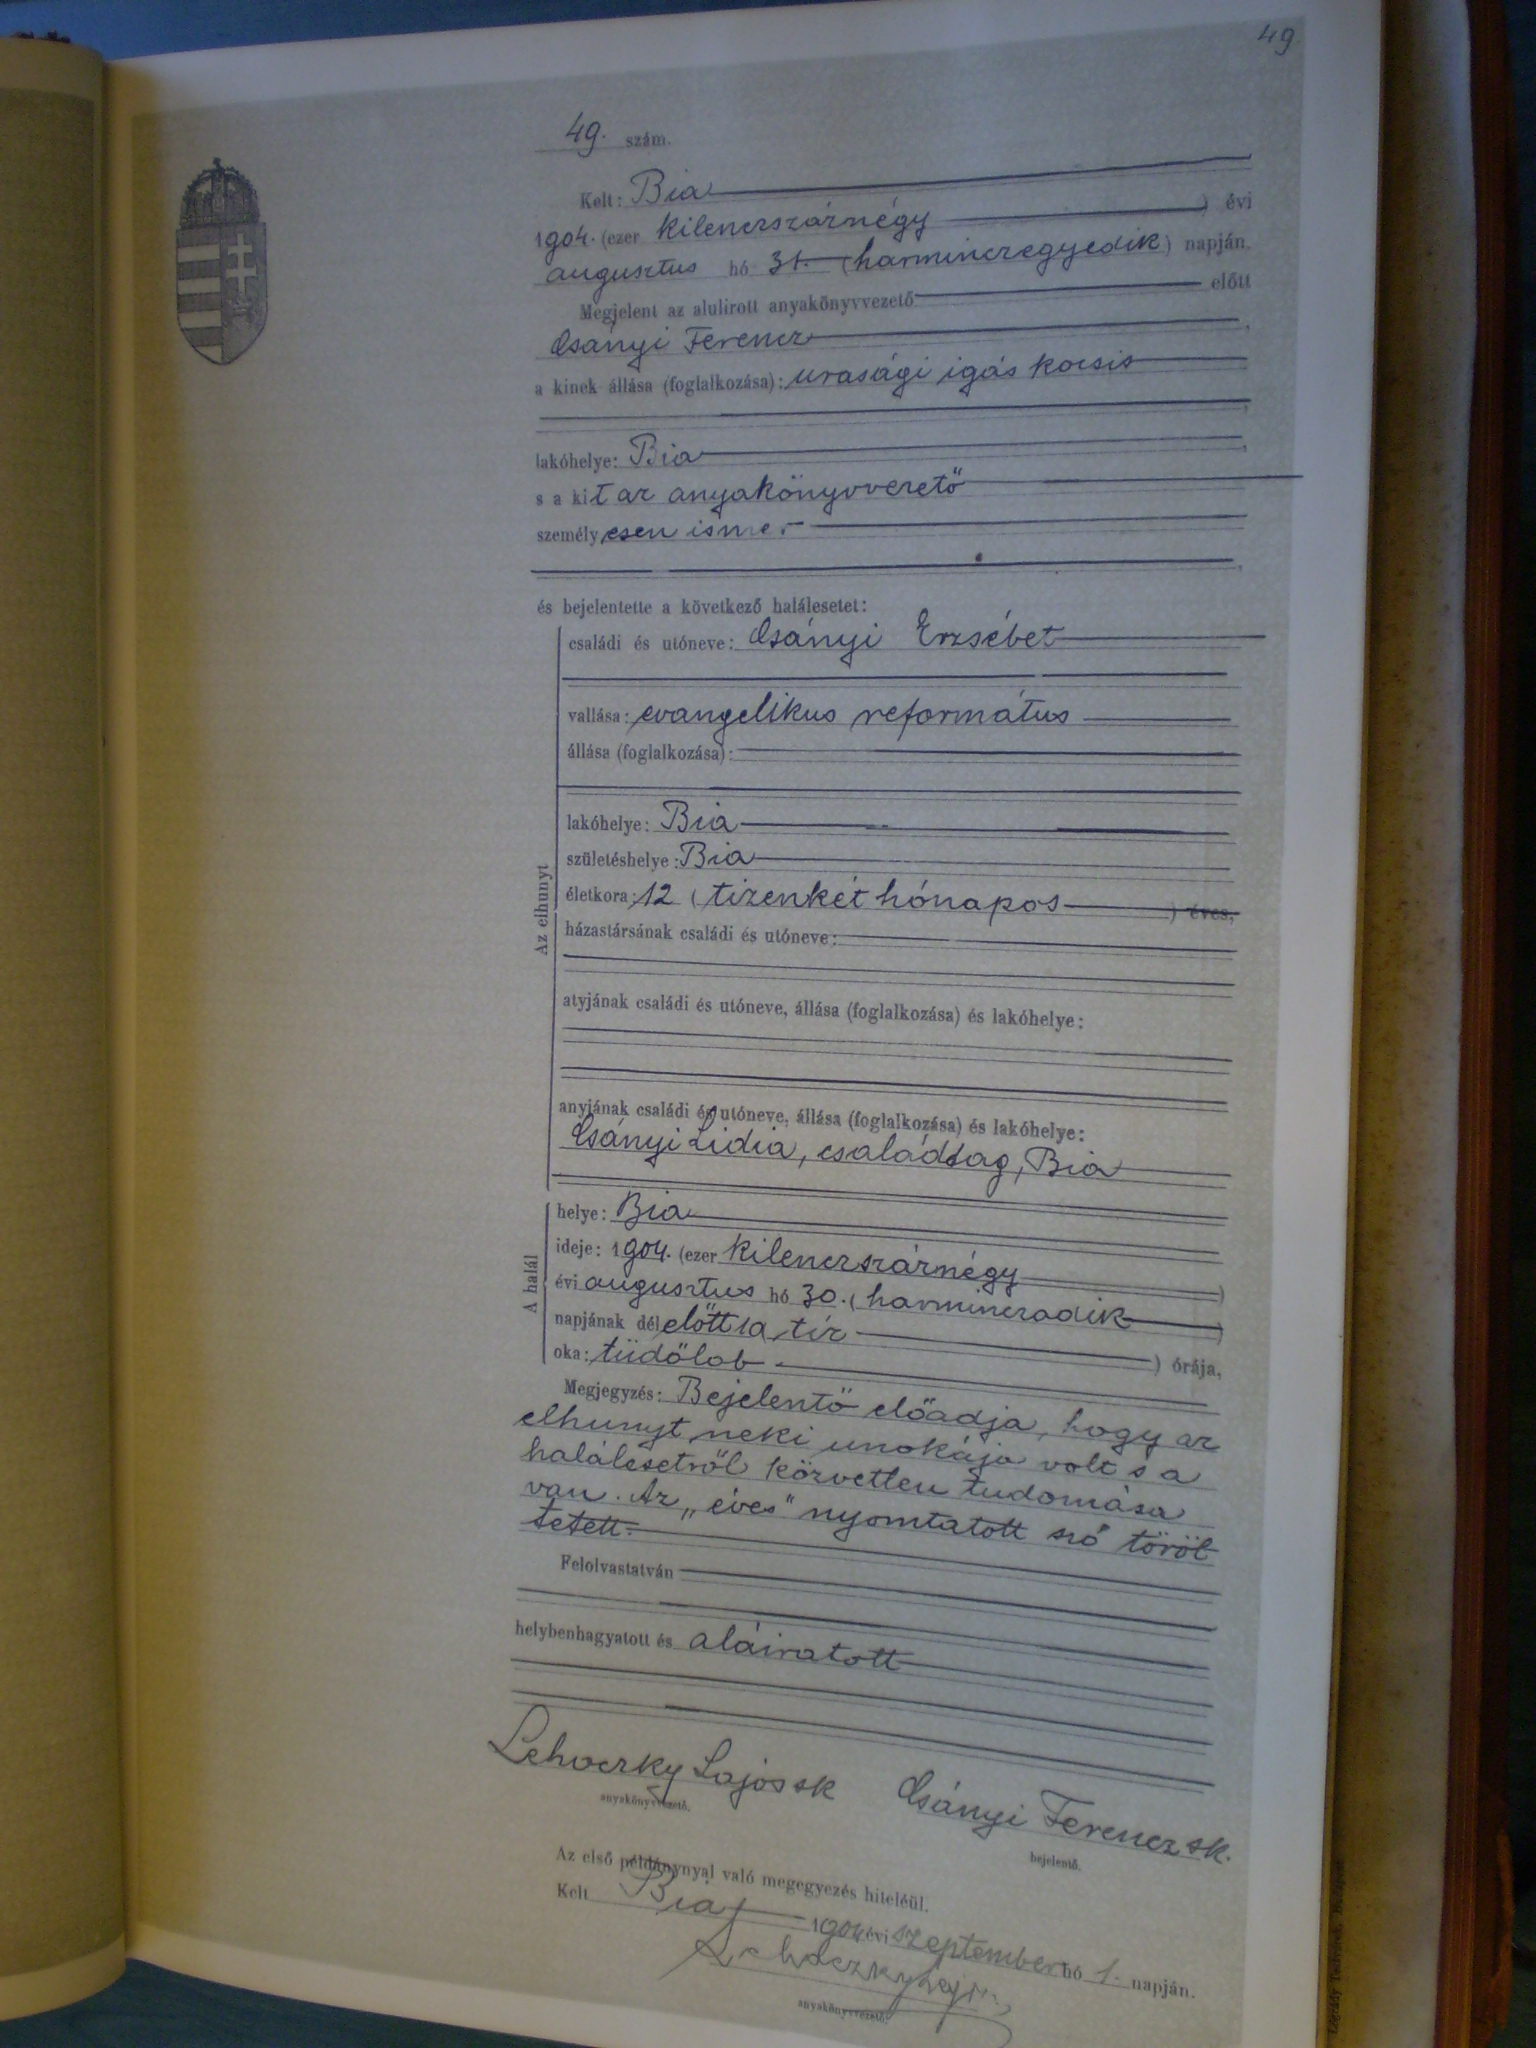 49.
49. szám.
Kelt: Bia
1904. (ezer kilenczszáznégy ) évi
augusztus hó 31. (harminczegyedik) napján.
Megjelent az alulirott anyakönyvvezető előtt
Csányi Ferencz ,
a kinek állása (foglalkozása): urasági igás kocsis
,
lakóhelye: Bia ,
s a kit az anyakönyvvezető
személyesen ismer
,
és bejelentette a következő halálesetet:
Az elhunyt
családi és utóneve: Csányi Erzsébet
vallása: evangelikus református
állása (foglalkozása):
lakóhelye: Bia
születéshelye: Bia
életkora: 12 (tizenkét hónapos ) éves,
házastársának családi és utóneve:
atyjának családi és utóneve, állása (foglalkozása) és lakóhelye:
anyjának családi és utóneve, állása (foglalkozása) és lakóhelye:
Csányi Lidia, családtag, Bia
A halál
helye: Bia
ideje: 1904. (ezer kilenczszáznégy )
évi augusztus hó 30. (harminczadik )
napjának délelőtt 10 tíz ) órája,
oka: tüdőlob
Megjegyzés: Bejelentő előadja, hogy az
elhunyt neki unokája volt s a
halálesetről közvetlen tudomása
van. Az „éves" nyomtatott szó töröl
tetett.
Felolvastatván
helybenhagyatott és aláiratott
Lehoczky Lajos sk Csányi Ferencz sk.
anyakönyvvezető. bejelentő.
Az első példánynyal való megegyezés hiteléül.
Kelt Bia 1904 évi szeptember hó 1. napján.
Lehoczky Lajos
anyakönyvvezető.